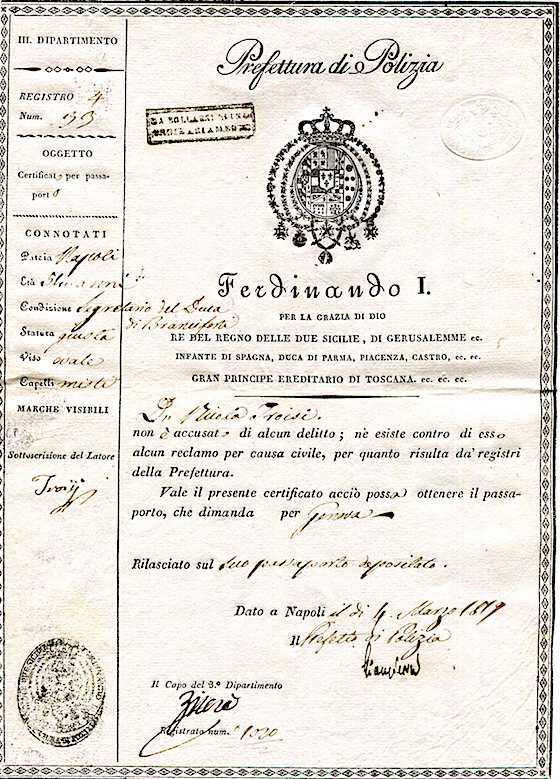 III. DIPARTIMENTO
REGISTRO 4
Num. 133
OGGETTO
Certificato per passa-
porto
CONNOTATI
Patria Napoli
Età anni
Condizione Segretario del Duca
di Branciforti
Statura giusta
Viso ovale
Capelli misti
MARCHE VISIBILI
Sottoscrizione del Latore
Prefettura di Polizia
Ferdinando I.
PER LA GRAZIA DI DIO
RE DEL REGNO DELLE DUE SICILIE, DI GERUSALEMME ec.
INFANTE DI SPAGNA, DUCA DI PARMA, PIACENZA, CASTRO, ec. ec.
GRAN PRINCIPE EREDITARIO DI TOSCANA. ec. ec. ec.
Dn Nicola Troise
non è accusato di alcun delitto; nè esiste contro di esso
alcun reclamo per causa civile, per quanto risulta da' registri
della Prefettura.
Vale il presente certificato acciò possa ottenere il passa-
porto, che dimanda per Genova
Rilasciato sul suo passaporto depositato.
Dato a Napoli il dì 4 Marzo 1819
Il Prefetto di Polizia
Il Capo del 3.º Dipartimento
Registrato num.º 1020